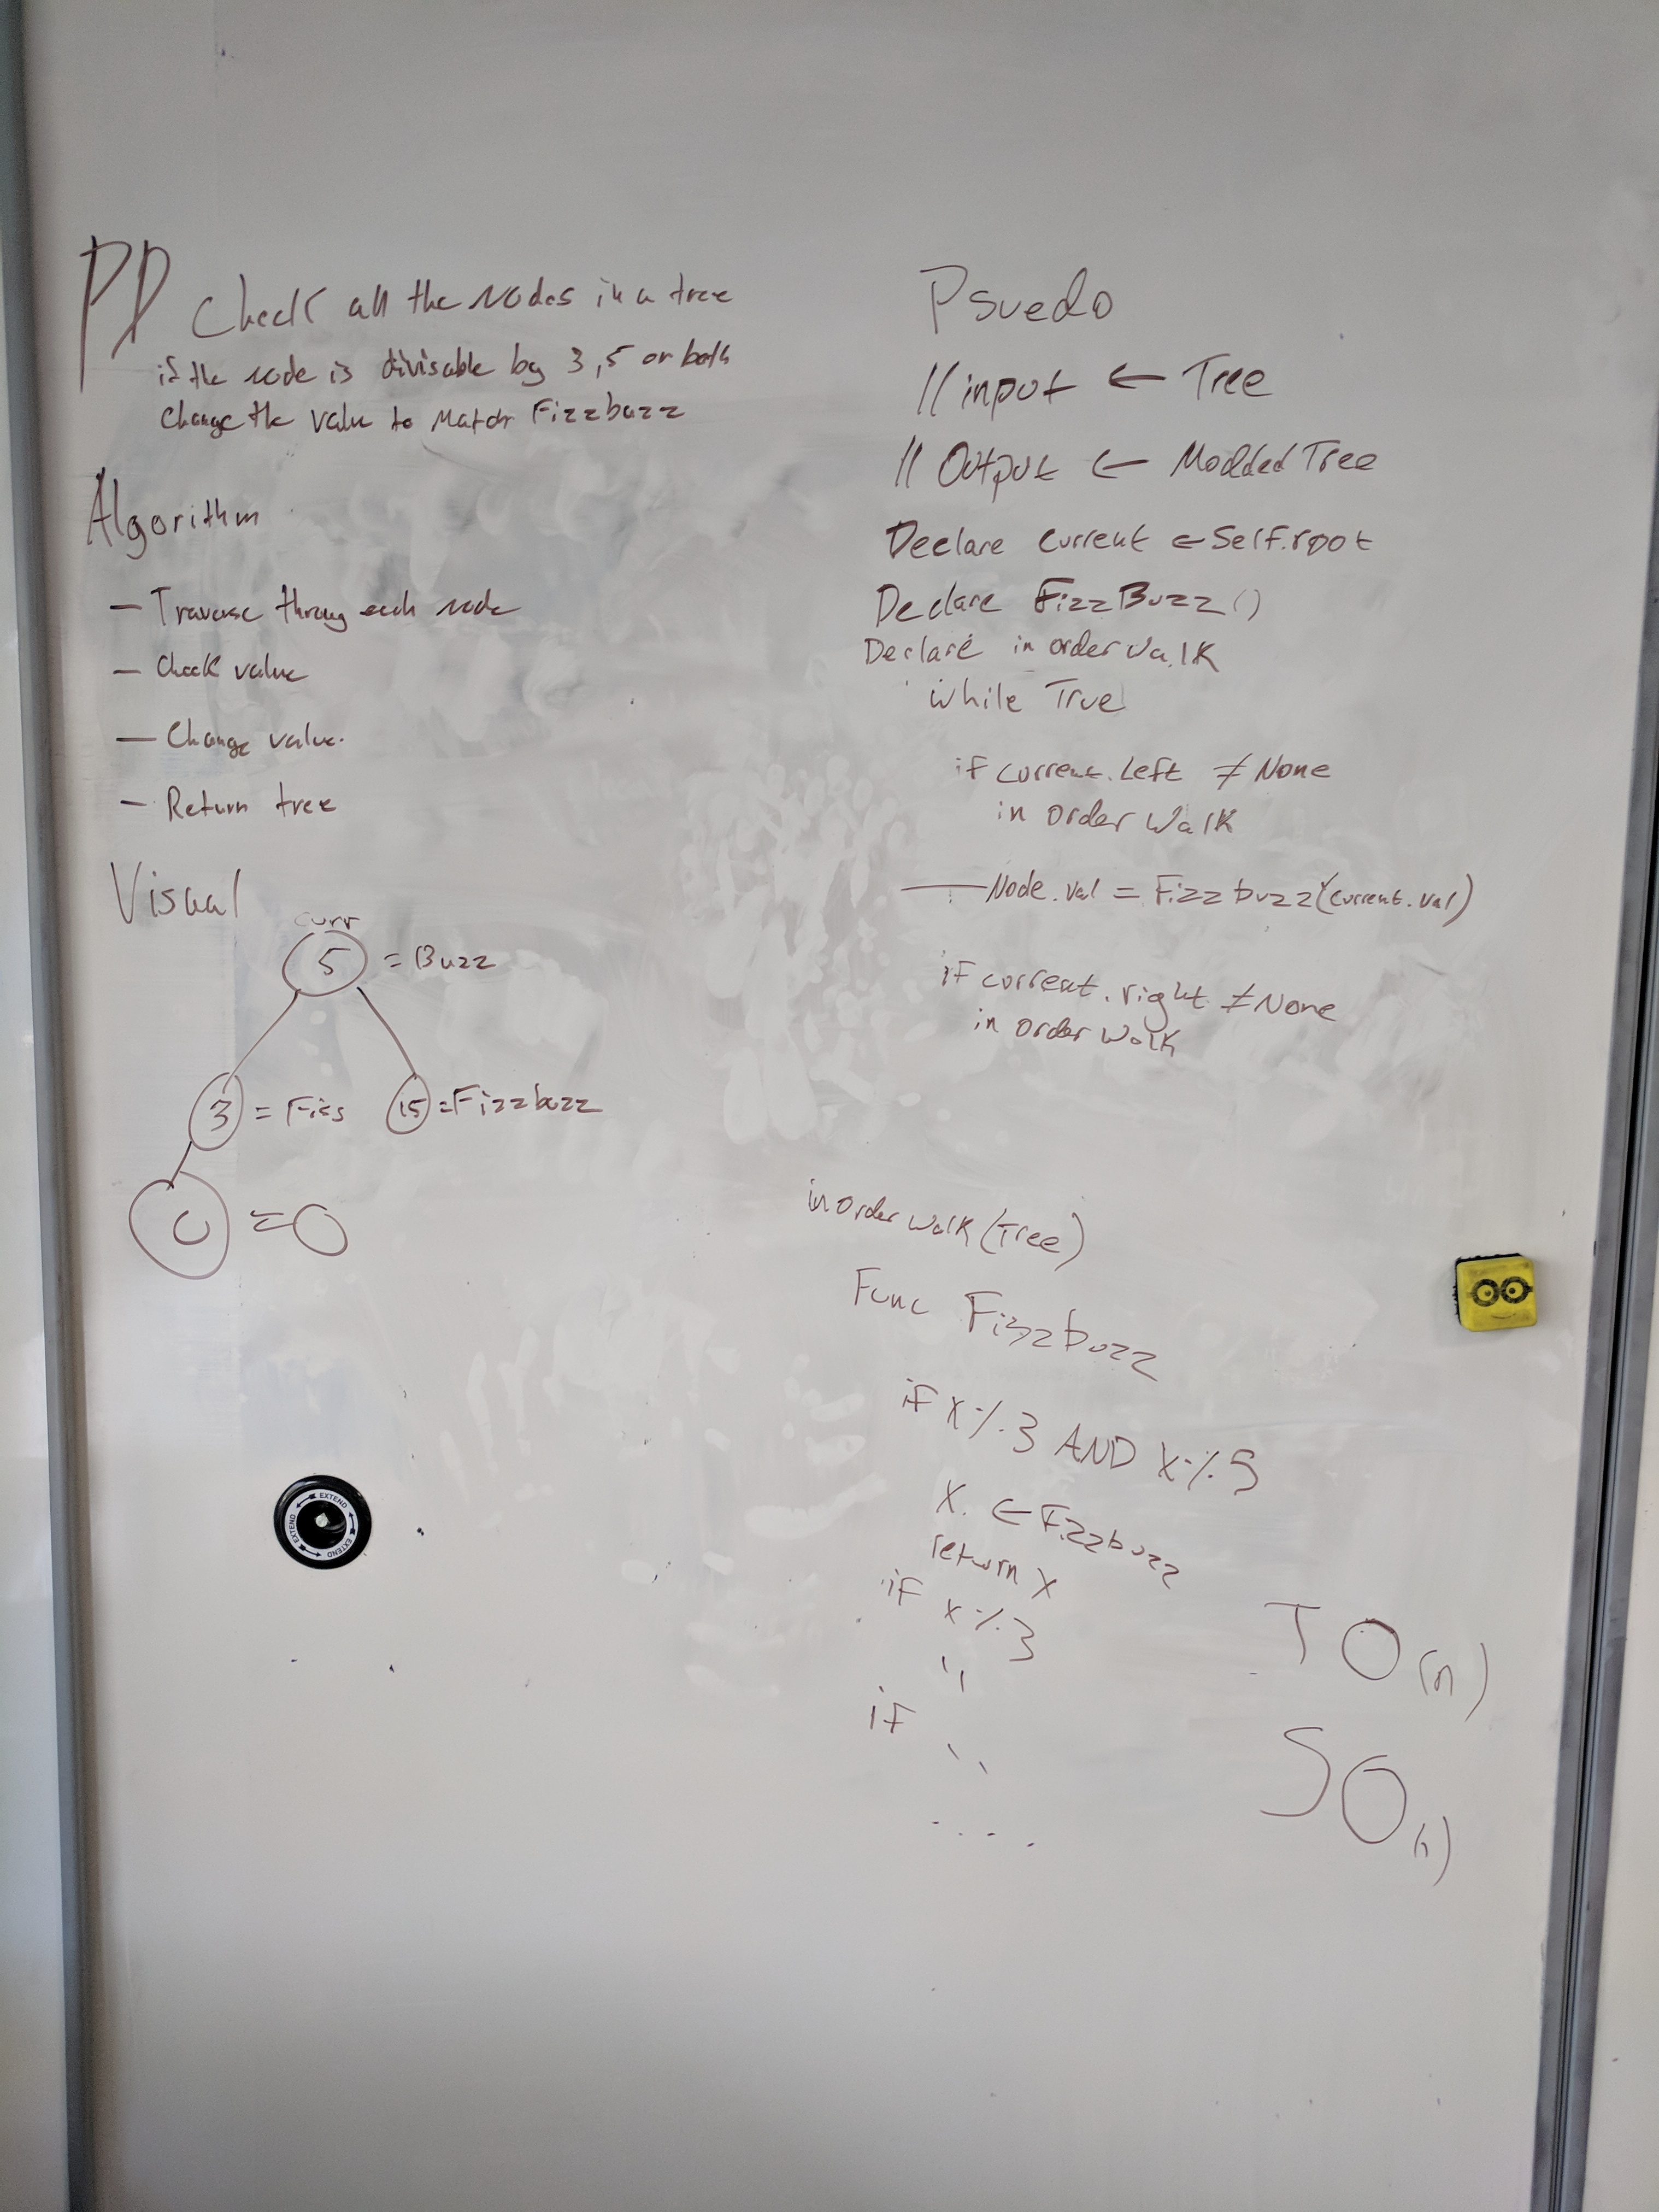 PD Check all the Nodes in a tree
if the node is divisable by 3, 5 or both
Change the value to match Fizzbuzz
Algorithm
- Traverse throug each node
- Check value
- Change value.
- Return tree
Visual
curr
5 = Buzz
3 = Fiss 15 = Fizzbuzz
0 = 0
Psuedo
// input ← Tree
// Output ← Modded Tree
Declare current ← Self.root
Declare FizzBuzz()
Declare in order walk
while True
if current.left ≠ None
in order walk
Node.val = Fizzbuzz(current.val)
if current.right ≠ None
in order walk
in order walk (Tree)
Func Fizzbuzz
if x % 3 AND x % 5
x. ← Fizzbuzz
return x
if x % 3
''
if
''
....
T O(n)
S O(n)
EXTEND EXTEND EXTEND EXTEND